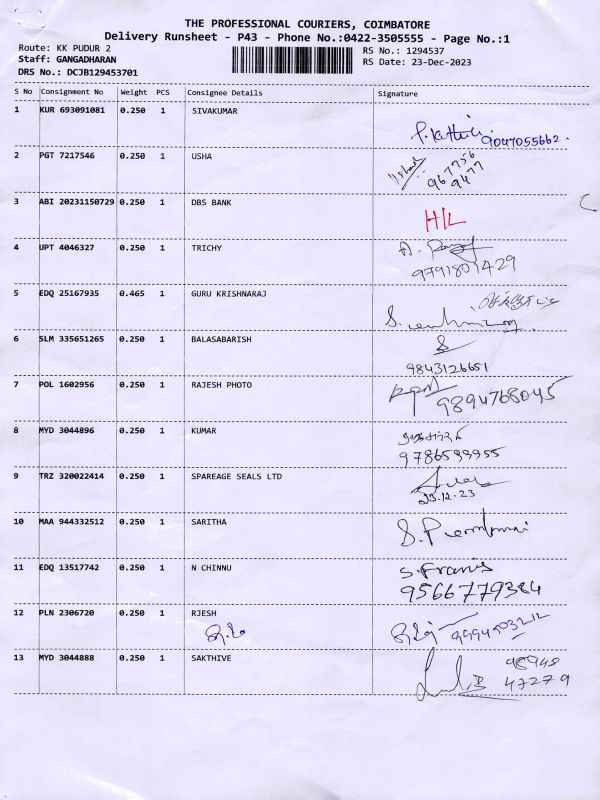 THE PROFESSIONAL COURIERS, COIMBATORE
Delivery Runsheet - P43 - Phone No.:0422-3505555 - Page No.:1
Route: KK PUDUR 2 RS No.: 1294537
Staff: GANGADHARAN RS Date: 23-Dec-2023
DRS No.: DCJB129453701
S No Consignment No Weight PCS Consignee Details Signature
1 KUR 693091081 0.250 1 SIVAKUMAR
9047055662.
2 PGT 7217546 0.250 1 USHA
967756
9477
3 ABI 20231150729 0.250 1 DBS BANK
H/L
4 UPT 4046327 0.250 1 TRICHY
9791801429
5 EDQ 25167935 0.465 1 GURU KRISHNARAJ
6 SLM 335651265 0.250 1 BALASABARISH
9843126651
7 POL 1602956 0.250 1 RAJESH PHOTO
9894768045
8 MYD 3044896 0.250 1 KUMAR
9786599955
9 TRZ 320022414 0.250 1 SPAREAGE SEALS LTD
23.12.23
10 MAA 944332512 0.250 1 SARITHA
11 EDQ 13517742 0.250 1 N CHINNU
S. Francis
9566779384
12 PLN 2306720 0.250 1 RJESH
9994903212
13 MYD 3044888 0.250 1 SAKTHIVE
98948
47279